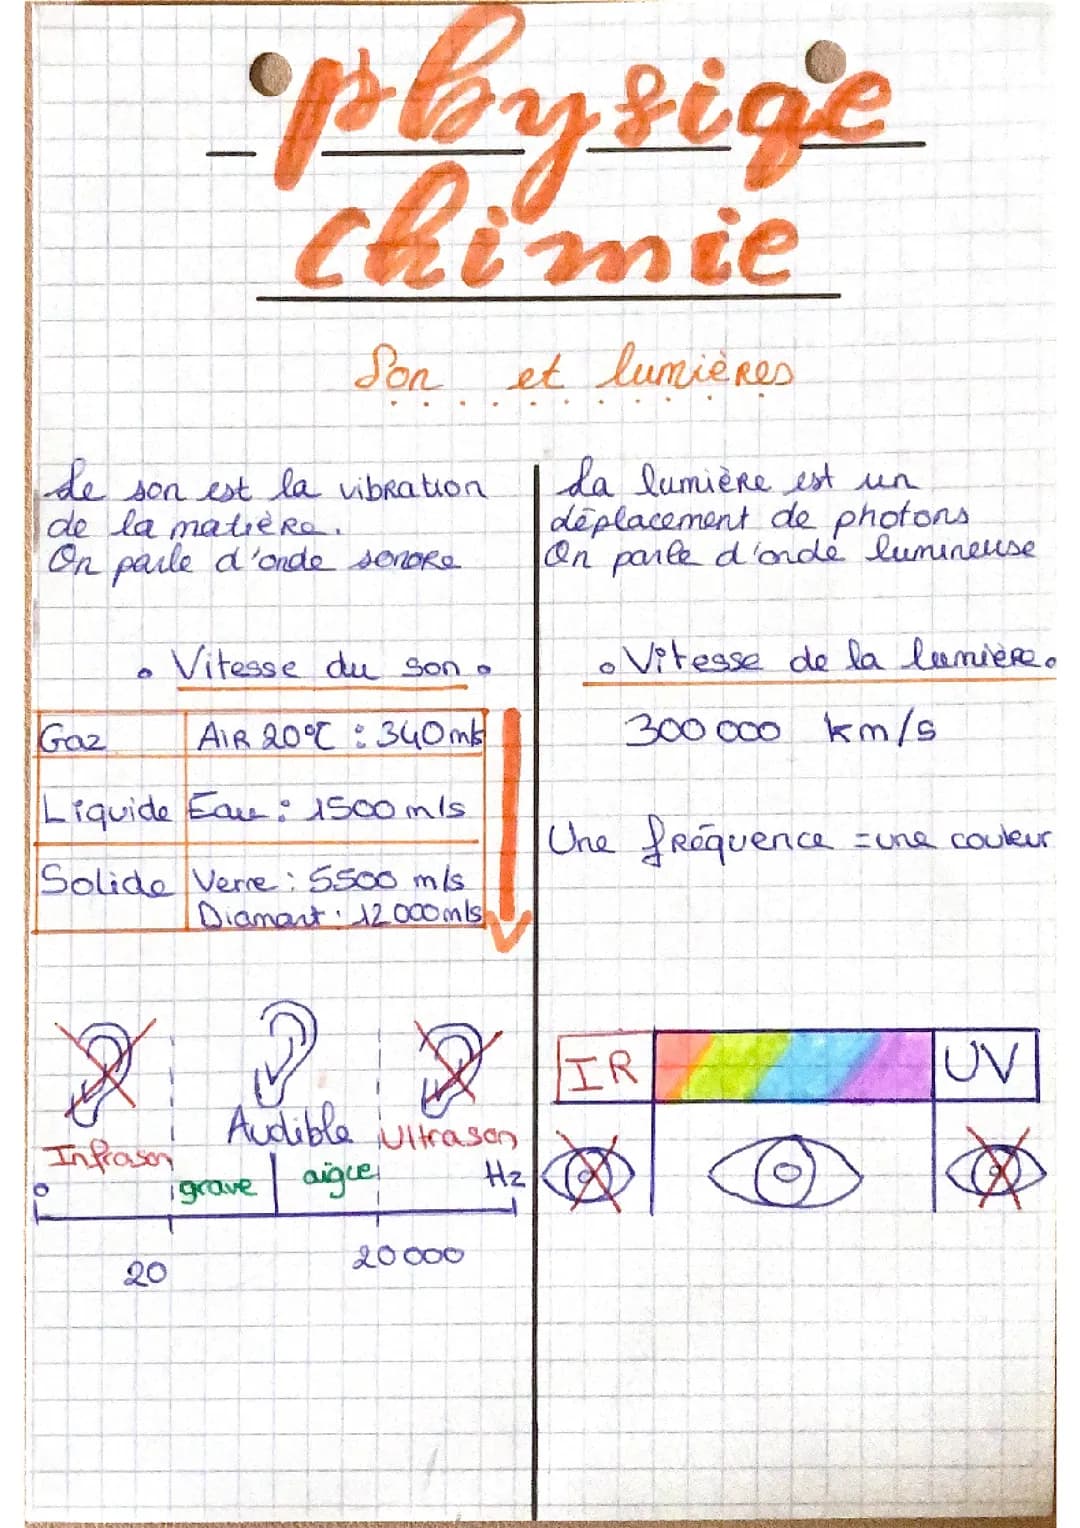 physiqe
chimie
Son et lumières
Le son est la vibration
de la matière.
On parle d'onde sonore
• Vitesse du son •
Gaz Air 20°C : 340 m/s
Liquide Eau : 1500 m/s
Solide Verre : 5500 m/s
Diamant : 12 000 m/s
Infrason
Audible
Ultrason
grave
aigue
Hz
0
20
20 000
La lumière est un
déplacement de photons
On parle d'onde lumineuse
• Vitesse de la lumière •
300 000 km/s
Une fréquence = une couleur
IR
UV